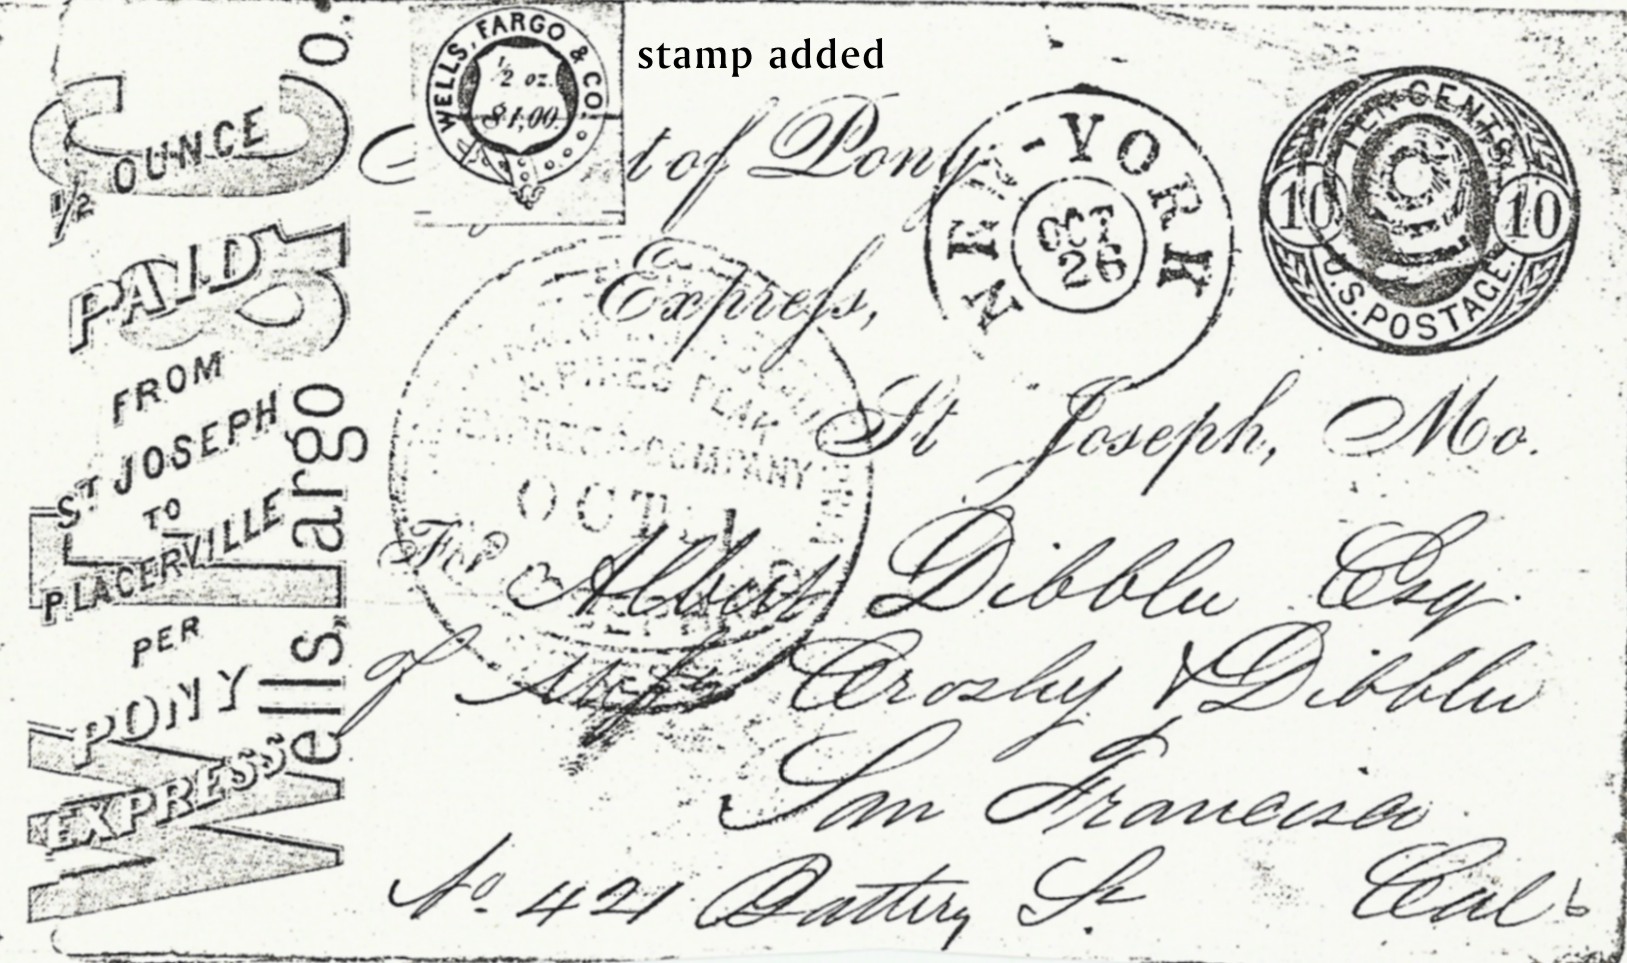 Wells, Fargo & Co.
½ OUNCE
PAID
FROM
ST JOSEPH
TO
PLACERVILLE
PER
PONY
EXPRESS
WELLS, FARGO & CO.
½ oz.
$1,00.
stamp added
t of Pony
Express,
NEW-YORK
OCT
26
TEN CENTS
10 10
U.S. POSTAGE.
PIKES PEAK
EXPRESS COMPANY
OCT
St Joseph, Mo.
For Albert Dibblee Esq.
of Messrs Crosby & Dibblee
San Francisco
No. 421 Battery St. Cal